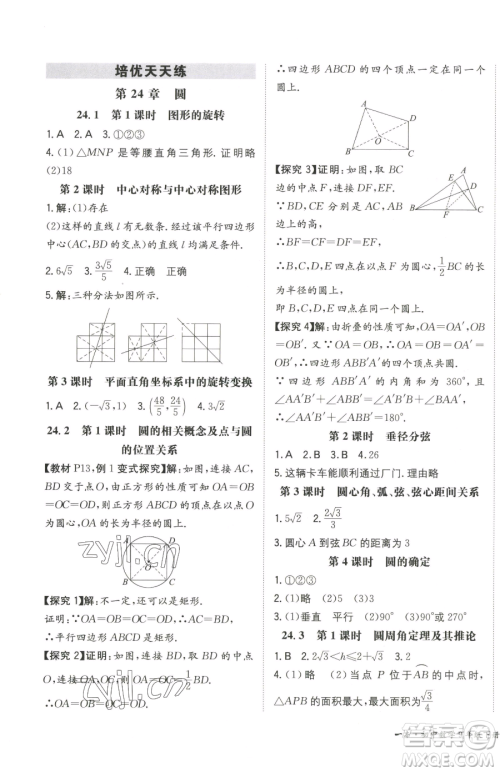 培优天天练
第24章 圆
24.1 第1课时 图形的旋转
1. A 2. A 3. ①②③
4. (1)△MNP是等腰直角三角形. 证明略
(2)18
第2课时 中心对称与中心对称图形
1. 解:(1)存在
(2)这样的直线l有无数条. 经过该平行四边形
中心(AC,BD的交点)的直线l均满足条件.
2. 6√5 3. 3√5/5 4. 正确 正确
5. 解:三种分法如图所示.
第3课时 平面直角坐标系中的旋转变换
1. A 2. (-√3,1) 3. (48/5,24/5) 4. 3√2
24.2 第1课时 圆的相关概念及点与圆
的位置关系
【教材P13,例1变式探究】解:如图,连接AC,
BD交于点O,由正方形的性质可知OA=OB
=OC=OD,故正方形的四个顶点在以点O
为圆心,OA的长为半径的圆上.
A
D
O
B
C
zyjl.cn
【探究1】解:不一定,还可以是矩形.
证明:∵OA=OB=OC=OD,∴AC=BD,
∴平行四边形ABCD是矩形.
【探究2】证明:如图,取BD的中点O,连接
OA,OC,则OA=OB=OC=OD=1/2BD.
∴四边形ABCD的四个顶点一定在同一个
圆上.
A
D
O
B
C
【探究3】证明:如图,取BC
边的中点F,连接DF,EF.
∵BD,CE分别是△ABC
两边上的高,
A
E
D
B
F
C
∴BF=CF=DF=EF,
∴E,B,C,D四点在以点F为圆心,1/2BC的
长为半径的圆上,
即E,B,C,D四点在同一个圆上.
【探究4】证明:由折叠的性质可知OA=OA′,
OB=OB′. 又∵OA=OB,∴OA=OA′=OB
=OB′,
∴四边形ABB′A′的内角和为360°,且
∠OAA′=∠OA′A,∠OBB′=∠OB′B,
∴∠A′AB+∠ABB′=180°.
第2课时 垂径分弦
5. 这辆卡车能顺利通过厂门. 理由略
第3课时 圆心角、弧、弦、弦心距间关系
1. 5√2 2. 2√3/3
3. 圆心A到弦BC的距离为3.
第4课时 圆的确定
1. ①②③ 2. (1)略 (2)5 (3)2
3. (1)垂直 平行 (2)90° (3)90°
24.3 第1课时 圆周角定理及其推论
1. B 2. 2√3<h≤2+√3 3. 2
4. (1)略 (2)当点P位于AB的中点时,
△APB的面积最大,最大面积为√3/4
zyjl.cn